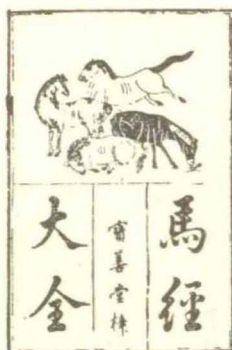 馬經
寶善堂梓
大全